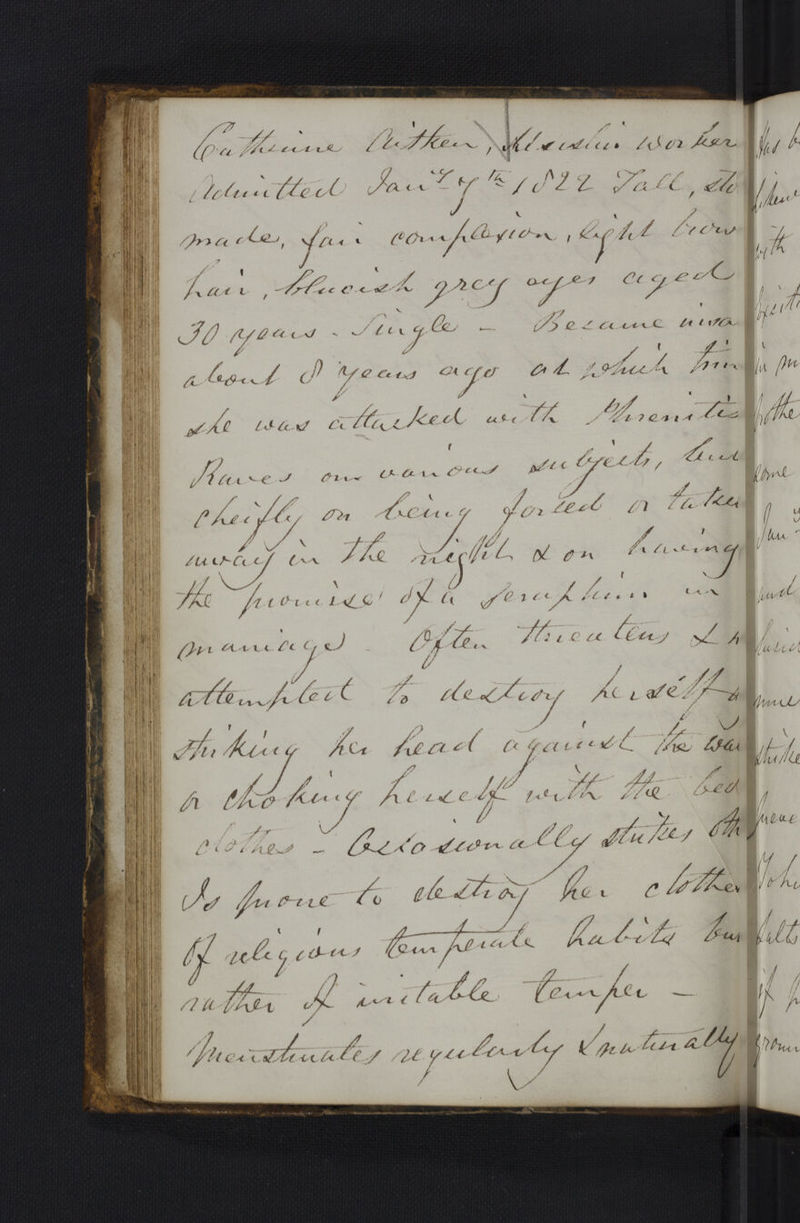 Catherine Aitken, Muslin worker
Admitted Jany 7th 1822 Tall, sto
made, fair complexion, light brow
hair, blueish grey eyes aged
30 years - Single - Became insa
about 8 years ago at which tim
she was attacked with Phrenitis
Raves on various subjects, but
cheifly on being forced or taken
away in the night & on having
the promise of a seraphim in
marriage. Often threatens &
attempted to destroy herself
striking her head against the wal
or choking herself with the bed
clothes - Occasionally strikes oth
Is prone to destroy her clothes
Of religious temperate habits but
rather of irritable temper -
Menstruates regularly & naturally